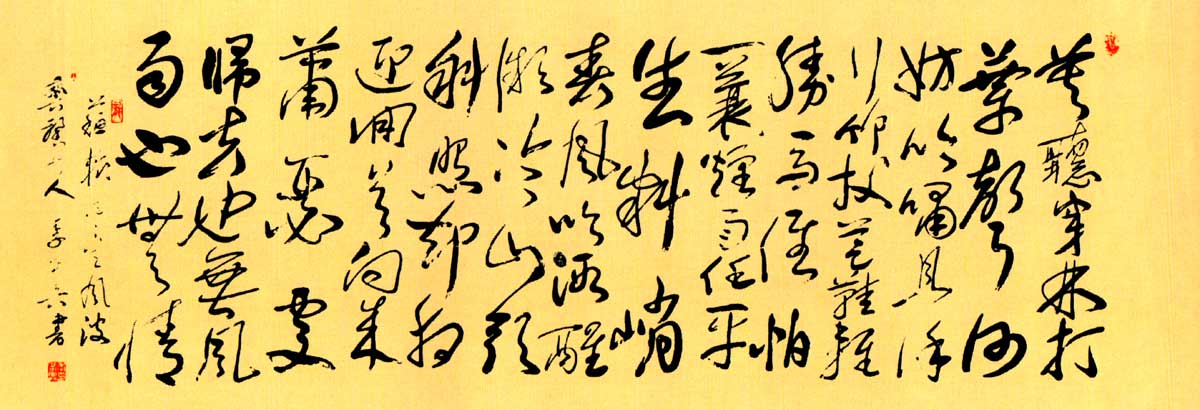 莫聽穿林打
葉聲何
妨吟嘯且徐
行竹杖芒鞋輕
勝馬誰怕
一蓑煙雨任平
生料峭
春風吹酒醒
微冷山頭
斜照却相
迎回首向來
蕭瑟處
歸去也無風
雨也無情
蘇軾定風波
人 書